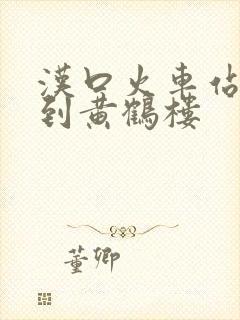 漢口火車佔
到黄鶴樓
董卿